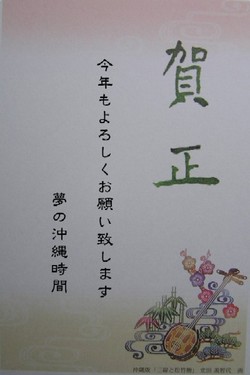 賀正
今年もよろしくお願い致します
夢の沖縄時間